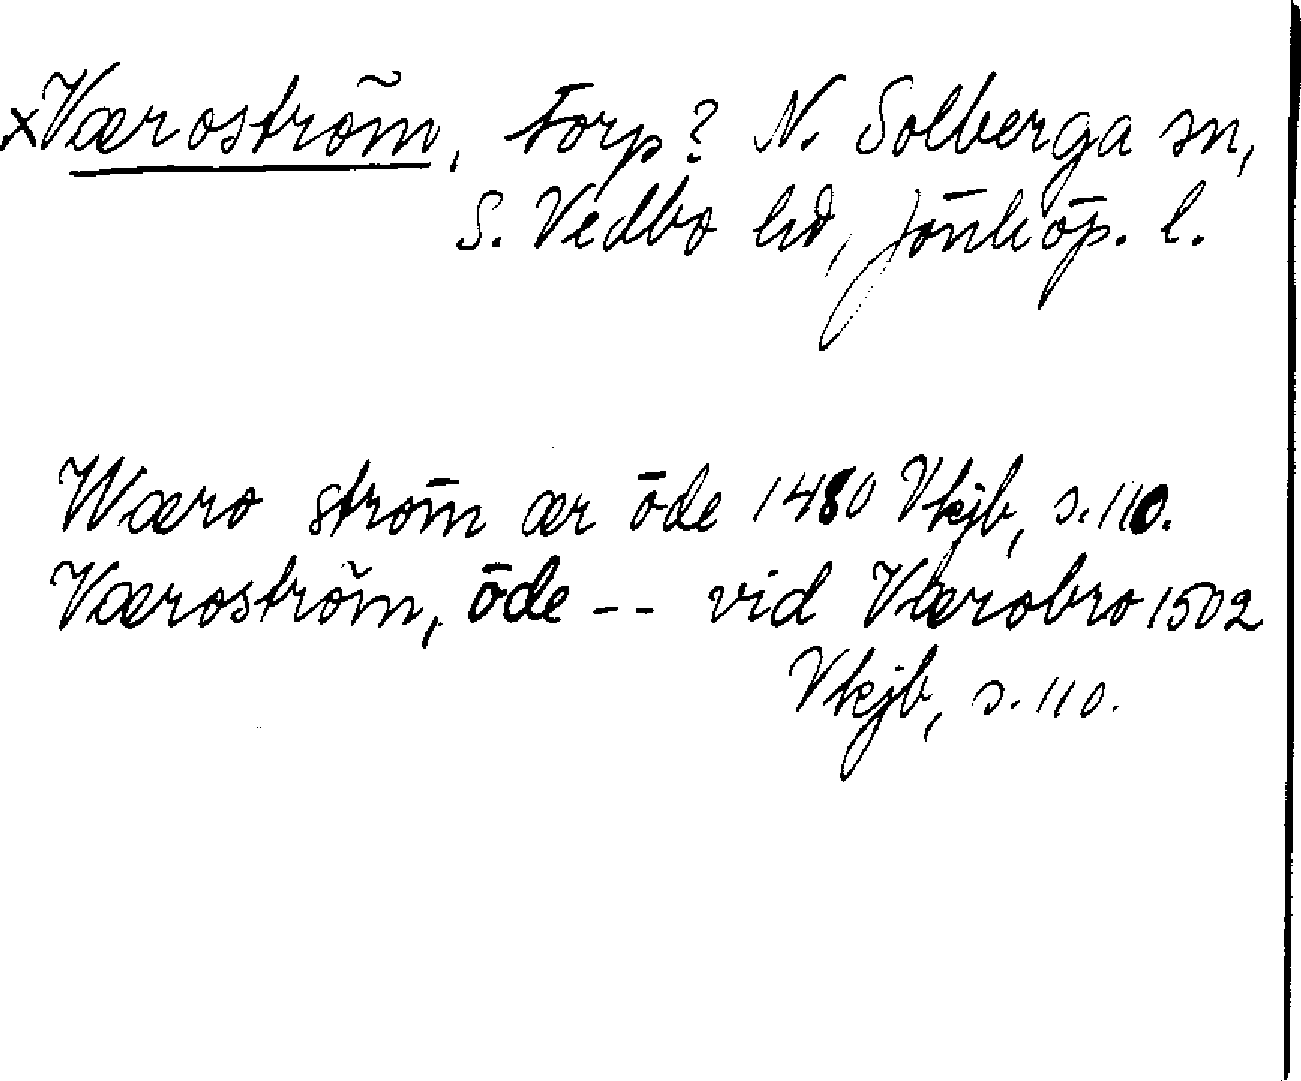 xVæroström, torp? N. Solberga sn,
S. Vedbo hd, Jönköp. l.
Wæro ström ær öde 1480 Vkjb, s. 110.
Væroström, öde -- vid Værobro 1502
Vkjb, s. 110.